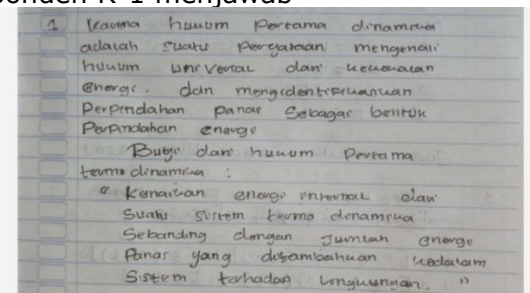 onden R-1 menjawab
1 Karena hukum Pertama dinamika
adalah suatu pernyataan mengenai
hukum universal dari kekekalan
energi. dan mengidentifikasikan
Perpindahan panas Sebagai bentuk
Perpindahan energi
Bunyi dari hukum Pertama
termodinamika :
" Kenaikan energi internal dari
Suatu Sistem termo dinamika
Sebanding dengan Jumlah energi
Panas yang ditambahkan kedalam
Sistem terhadap lingkungan. "